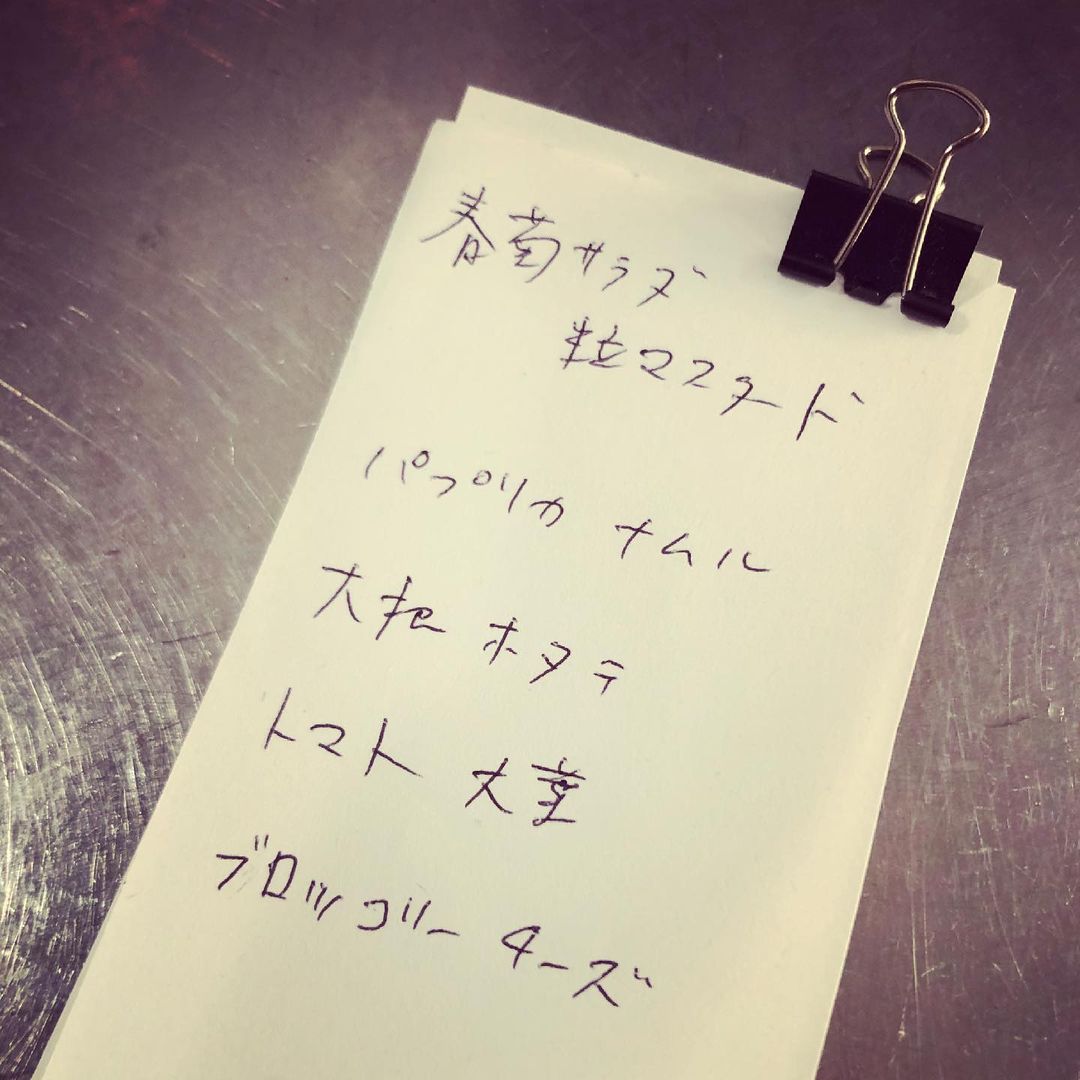 春菊サラダ
粒マスタード
パプリカ ナムル
大根 ホタテ
トマト 大葉
ブロッコリー チーズ